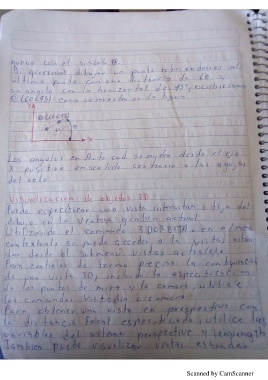 nuevo con el simbolo @.
Si queremos dibujar un punto referenciandonos al
ultimo punto con una distancia de 60 y
un angulo con la horizontal de 45°, escribiremos
@60<45 como se muestra en la figura
Los angulos en AutoCad se miden desde el eje
X positivo en sentido contrario a las agujas
del reloj.
Visualización de objetos 3D:
Puede especificar una vista interactiva o fija del
dibujo en la ventana grafica actual
Utilizando el comando 3DORBITA, en el menu
contextual se puede acceder a las vistas
desde el submenu vistas
Para controlar de forma precisa la
de una vista 3D, incluida la especificación
de los puntos de mira y la camara, utilice
los comandos
Para obtener una vista en perspectiva con
la distancia focal especificada, utilice las
variables del sistema perspective y lenslength
Tambien puede visualizar vistas estandar
Scanned by CamScanner